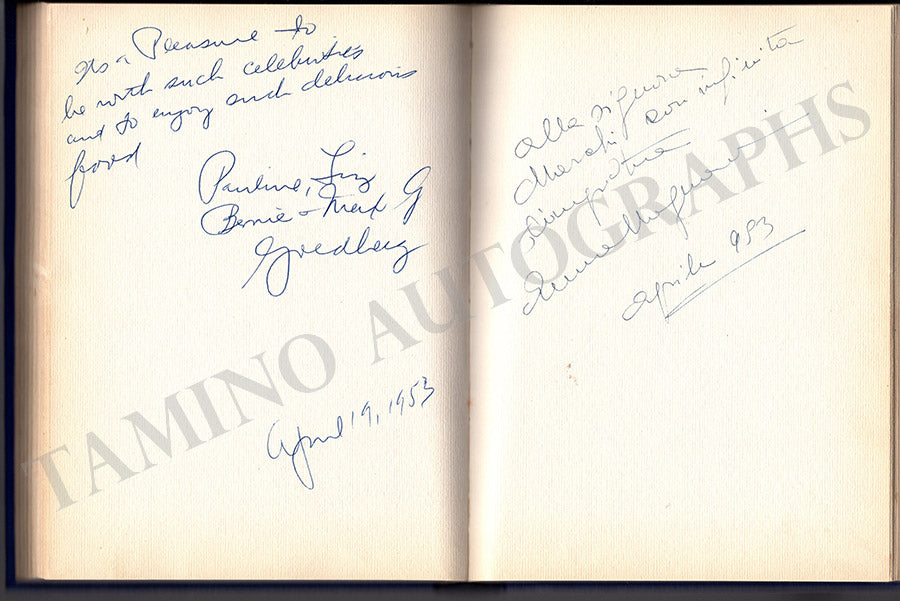 Its a Pleasure to
be with such celebrities
and to enjoy such delicious
food
Pauline, Liz
Bernie + Max G
Goldberg
April 19, 1953
alla signora
con infinita
simpatia
aprile 953
TAMINO AUTOGRAPHS